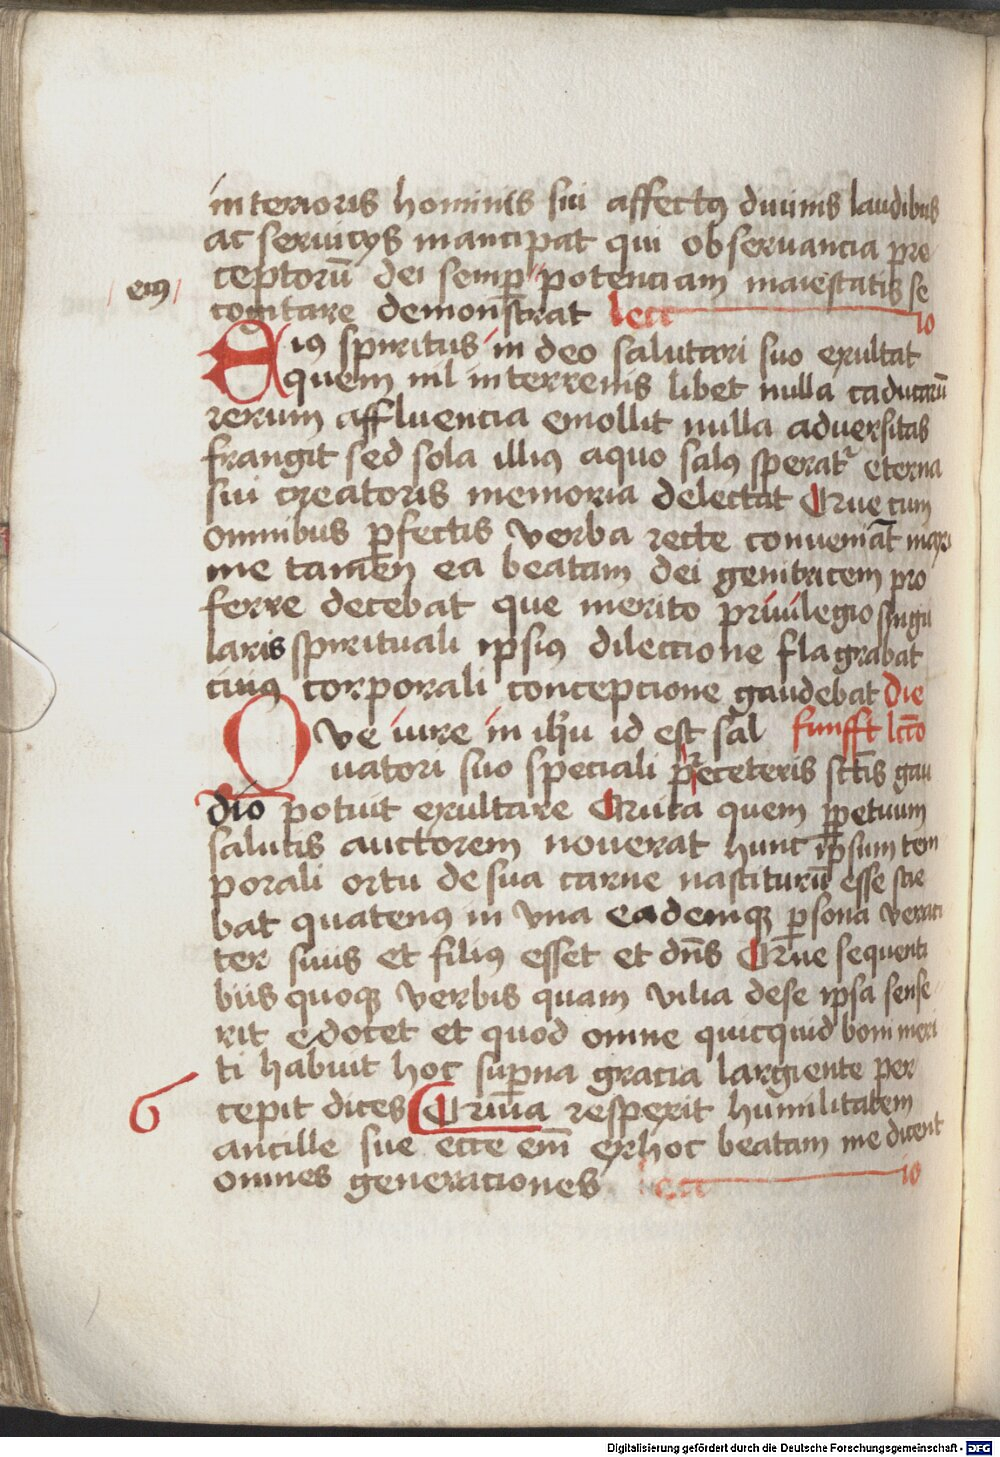 interioris hominis sui affectꝫ diuinis laudibus
ac seruicijs mancipat qui obseruancia pre
ceptorū dei semꝑ // potenciam maiestatis se
/ eiꝰ /
cogitare demonstrat lecc io
Eiꝰ spiritus in deo salutari suo exultat
quem nil in terrenis libet nulla caducarū
rerum affluencia emollit nulla aduersitas
frangit sed sola illiꝰ aquo salꝰ speratr eterna
sui creatoris memoria delectat Que cum
omnibus ꝑfectis verba recte conueniāt maxi
me tamen ea beatam dei genitricem pro
ferre decebat que merito priuilegio singu
laris spirituali ipsiꝰ dileccione flagrabat
cuiꝰ corporali concepcione gaudebat die
Que iure in ihū id est sal funfft lcco
uatori suo speciali p̄ ceteris sctīs gau
dio potuit exultare Quia quem ꝑpetuum
salutis auctorem nouerat hunc ipsum tem
porali ortu de sua carne nasciturū esse scie
bat quatenꝰ in vna eademqꝫ ꝑsona veraci
ter suus et filiꝰ esset et dn̄s Que sequenti
bus quoqꝫ verbis quam vilia de se ipsa sense
rit edocet et quod omne quicquid boni meri
ti habuit hoc suꝑna gracia largiente per
6
cepit dices Quia respexit humilitatem
ancille sue ecce em̄ ex hoc beatam me dicent
omnes generaciones lecc io
Digitalisierung gefördert durch die Deutsche Forschungsgemeinschaft - DFG